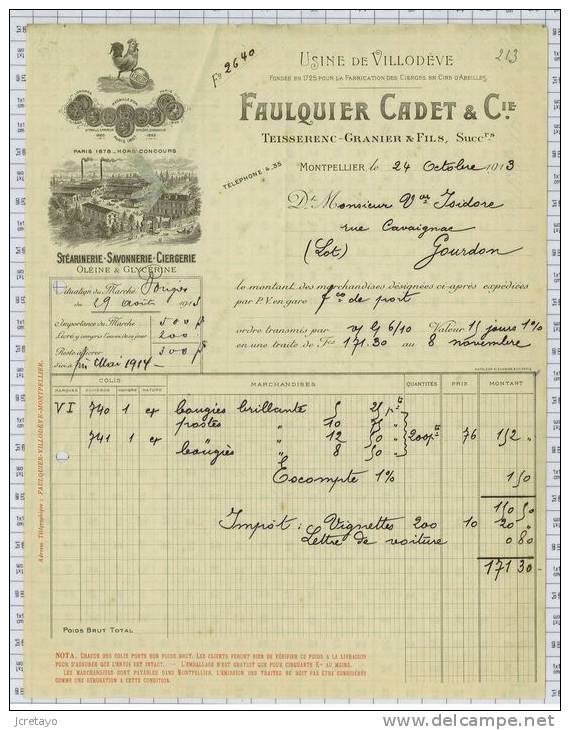 Fo 2640
USINE DE VILLODÈVE
213
FONDÉE EN 1725 POUR LA FABRICATION DES CIERGES EN CIRE D'ABEILLES
FAULQUIER CADET & CIE
TEISSERENC-GRANIER & FILS, SUCCRS
PARIS 1878 _ HORS CONCOURS
TÉLÉPHONE 4.35
MONTPELLIER, le 24 Octobre 1913
Dt Monsieur Vor Isidore
rue Cavaignac
(Lot) Gourdon
STÉARINERIE-SAVONNERIE-CIERGERIE
OLÉINE & GLYCÉRINE
Situation du Marché Bougies
du 29 août 1913
Importance du Marché 500 p
Livré y compris l'envoi du jour 200
Reste à livrer 300 p
d'ici à fin Mai 1914
le montant des marchandises désignées ci-après expédiées
par P.V. en gare fco de port
ordre transmis par 6/10 Valeur 15 jours 1%
en une traite de Fcs 171.30 au 8 novembre
COLIS
MARQUES NUMÉROS NATURE MARCHANDISES QUANTITÉS PRIX MONTANT
VI 740 1 cx bougies brillante
postes 10
741 1 cx " 12 50 " 200 pts 76 152 "
bougies " 8 50 "
Escompte 1% 1 50
150 50
Impôt : Vignettes 200 10 20 "
Lettre de voiture 0 80
171 30
Adresse Télégraphique : FAULQUIER-VILLODÈVE-MONTPELLIER.
POIDS BRUT TOTAL
NOTA. CHACUN DES COLIS PORTE SON POIDS BRUT. LES CLIENTS FERONT BIEN DE VÉRIFIER CE POIDS A LA LIVRAISON
POUR S'ASSURER QUE L'ENVOI EST INTACT. — L'EMBALLAGE N'EST GRATUIT QUE POUR CINQUANTE KOS AU MOINS.
LES MARCHANDISES SONT PAYABLES DANS MONTPELLIER. L'ÉMISSION DES TRAITES NE DOIT PAS ÊTRE CONSIDÉRÉE
COMME UNE DÉROGATION A CETTE CONDITION.
jcretayo
delcampe.net